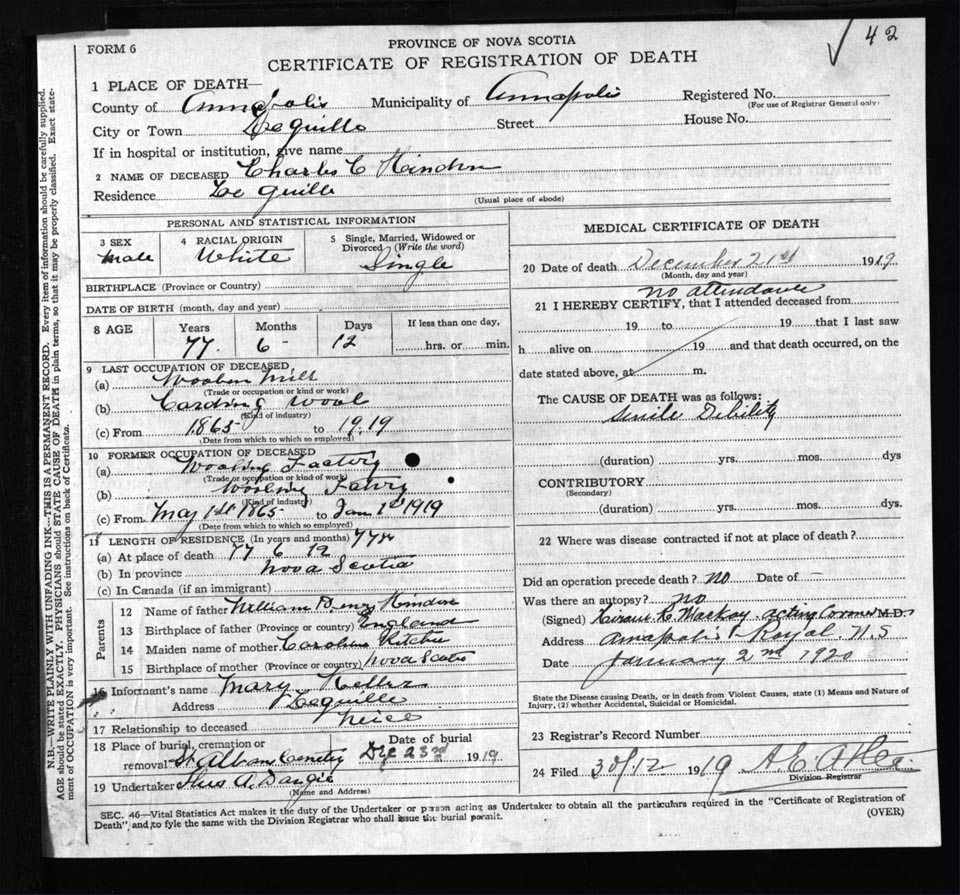 42
FORM 6
PROVINCE OF NOVA SCOTIA
CERTIFICATE OF REGISTRATION OF DEATH
1 PLACE OF DEATH—
County of Annapolis Municipality of Annapolis Registered No.
(For use of Registrar General only)
City or Town Lequille Street House No.
If in hospital or institution, give name
2 NAME OF DECEASED Charles C
Residence Le Quille
(Usual place of abode)
PERSONAL AND STATISTICAL INFORMATION
3 SEX 4 RACIAL ORIGIN 5 Single, Married, Widowed or Divorced (Write the word)
Male White Single
BIRTHPLACE (Province or Country)
DATE OF BIRTH (month, day and year)
8 AGE Years Months Days If less than one day,
77 6 12 hrs. or min.
9 LAST OCCUPATION OF DECEASED
(a) Woolen Mill
(Trade or occupation or kind or work)
(b) Carding Wool
(Kind of industry)
(c) From 1865 to 1919
(Date from which to which so employed)
10 FORMER OCCUPATION OF DECEASED
(a) Factory
(Trade or occupation or kind of work)
(b)
(Kind of industry)
(c) From May 1st 1865 to Jan 1st 1919
(Date from which to which so employed)
11 LENGTH OF RESIDENCE (In years and months)
(a) At place of death 77 6 12
(b) In province Nova Scotia
(c) In Canada (if an immigrant)
Parents
12 Name of father William Henry
13 Birthplace of father (Province or country) England
14 Maiden name of mother Caroline Ritchie
15 Birthplace of mother (Province or country) Nova Scotia
16 Informant's name Mary
Address Lequille
17 Relationship to deceased Neice
18 Place of burial, cremation or removal St Albans Cemetery Date of burial Dec 23rd 1919
19 Undertaker
(Name and Address)
MEDICAL CERTIFICATE OF DEATH
20 Date of death December 21st 1919
(Month, day and year)
no attendance
21 I HEREBY CERTIFY, that I attended deceased from
19 to 19 that I last saw
h alive on 19 and that death occurred, on the
date stated above, at m.
The CAUSE OF DEATH was as follows:
Senile Debility
(duration) yrs. mos. dys
CONTRIBUTORY
(Secondary)
(duration) yrs. mos. dys.
22 Where was disease contracted if not at place of death?
Did an operation precede death? no Date of —
Was there an autopsy? no
(Signed) acting Coroner M.D.
Address Annapolis Royal N.S
Date January 2nd 1920
State the Disease causing Death, or in death from Violent Causes, state (1) Means and Nature of
Injury, (2) whether Accidental, Suicidal or Homicidal.
23 Registrar's Record Number
24 Filed 30/12 1919
Division Registrar
SEC. 46—Vital Statistics Act makes it the duty of the Undertaker or person acting as Undertaker to obtain all the particulars required in the "Certificate of Registration of
Death", and to fyle the same with the Division Registrar who shall issue the burial permit. (OVER)
N.B.—WRITE PLAINLY WITH UNFADING INK—THIS IS A PERMANENT RECORD. Every item of information should be carefully supplied.
AGE should be stated EXACTLY. PHYSICIANS should STATE CAUSE OF DEATH in plain terms, so that it may be properly classified. Exact state-
ment of OCCUPATION is very important. See instructions on back of Certificate.